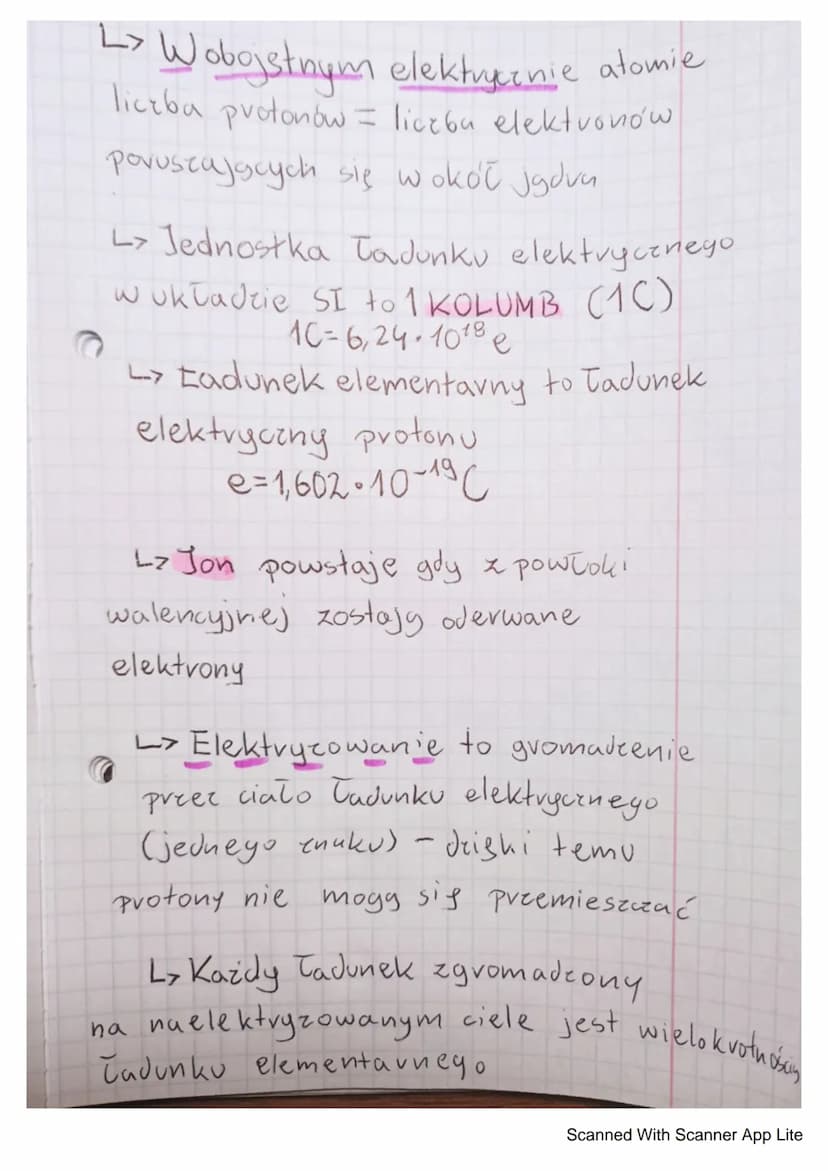 ↳ W obojętnym elektrycznie atomie
liczba protonów = liczba elektronów
poruszających się wokół jądra
↳ Jednostka ładunku elektrycznego
w układzie SI to 1 KOLUMB (1C)
1C = 6,24 · 10¹⁸ e
↳ Ładunek elementarny to ładunek
elektryczny protonu
e = 1,602 · 10⁻¹⁹ C
↳ Jon powstaje gdy z powłoki
walencyjnej zostają oderwane
elektrony
↳ Elektryzowanie to gromadzenie
przez ciało ładunku elektrycznego
(jednego znaku) – dzięki temu
protony nie mogą się przemieszczać
↳ Każdy ładunek zgromadzony
na naelektryzowanym ciele jest wielokrotnością
ładunku elementarnego
Scanned With Scanner App Lite